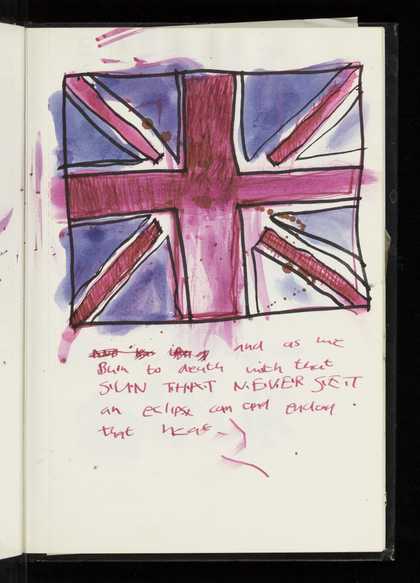 and as we
Burn to death with that
SUN THAT NEVER SET
an eclipse can end
that heat